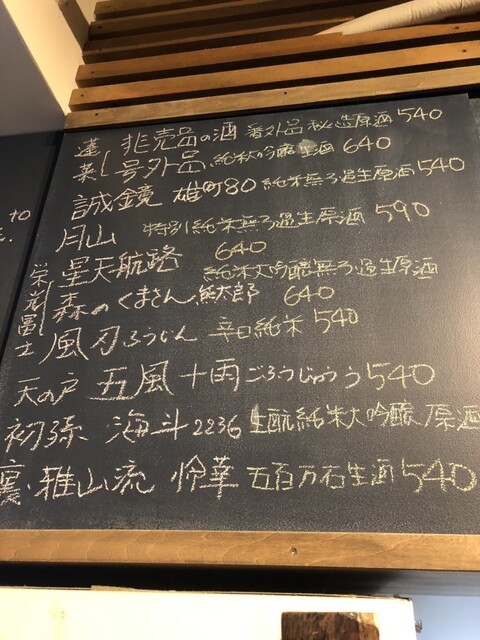 蓬莱 非売品の酒 番外品 秘造原酒 540
号外品 純米吟醸生酒 640
誠鏡 雄町80 純米無ろ過生原酒 540
月山 特別純米無ろ過生原酒 590
栄光冨士 星天航路 640 純米大吟醸無ろ過生原酒
森のくまさん 熊太郎 640
風刃ふうじん 辛口純米 540
天の戸 五風十雨 ごふうじゅうう 540
初孫 海斗2236 生酛純米大吟醸原酒
裏・雅山流 怜華 五百万石生酒 540
to